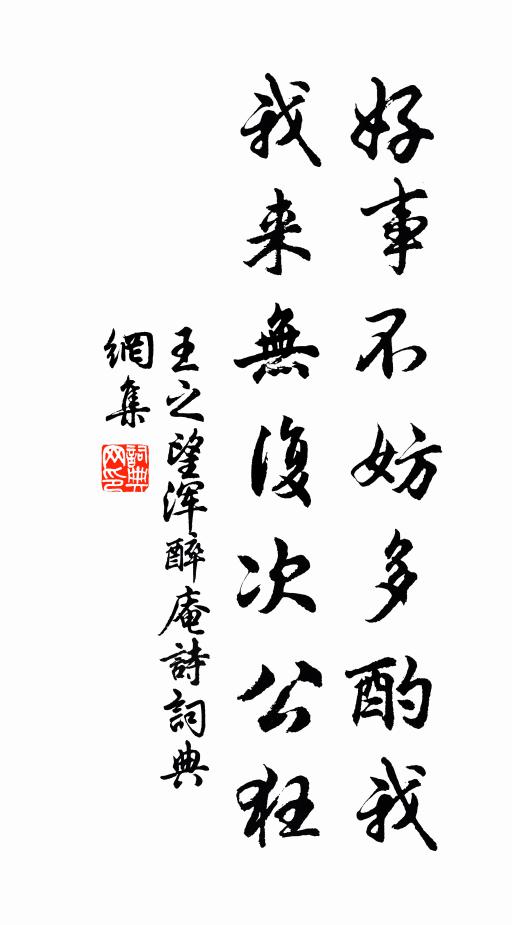 好事不妨多酌我
我来無復次公狂
王之望浑醉庵詩詞典
網集
詞典网印